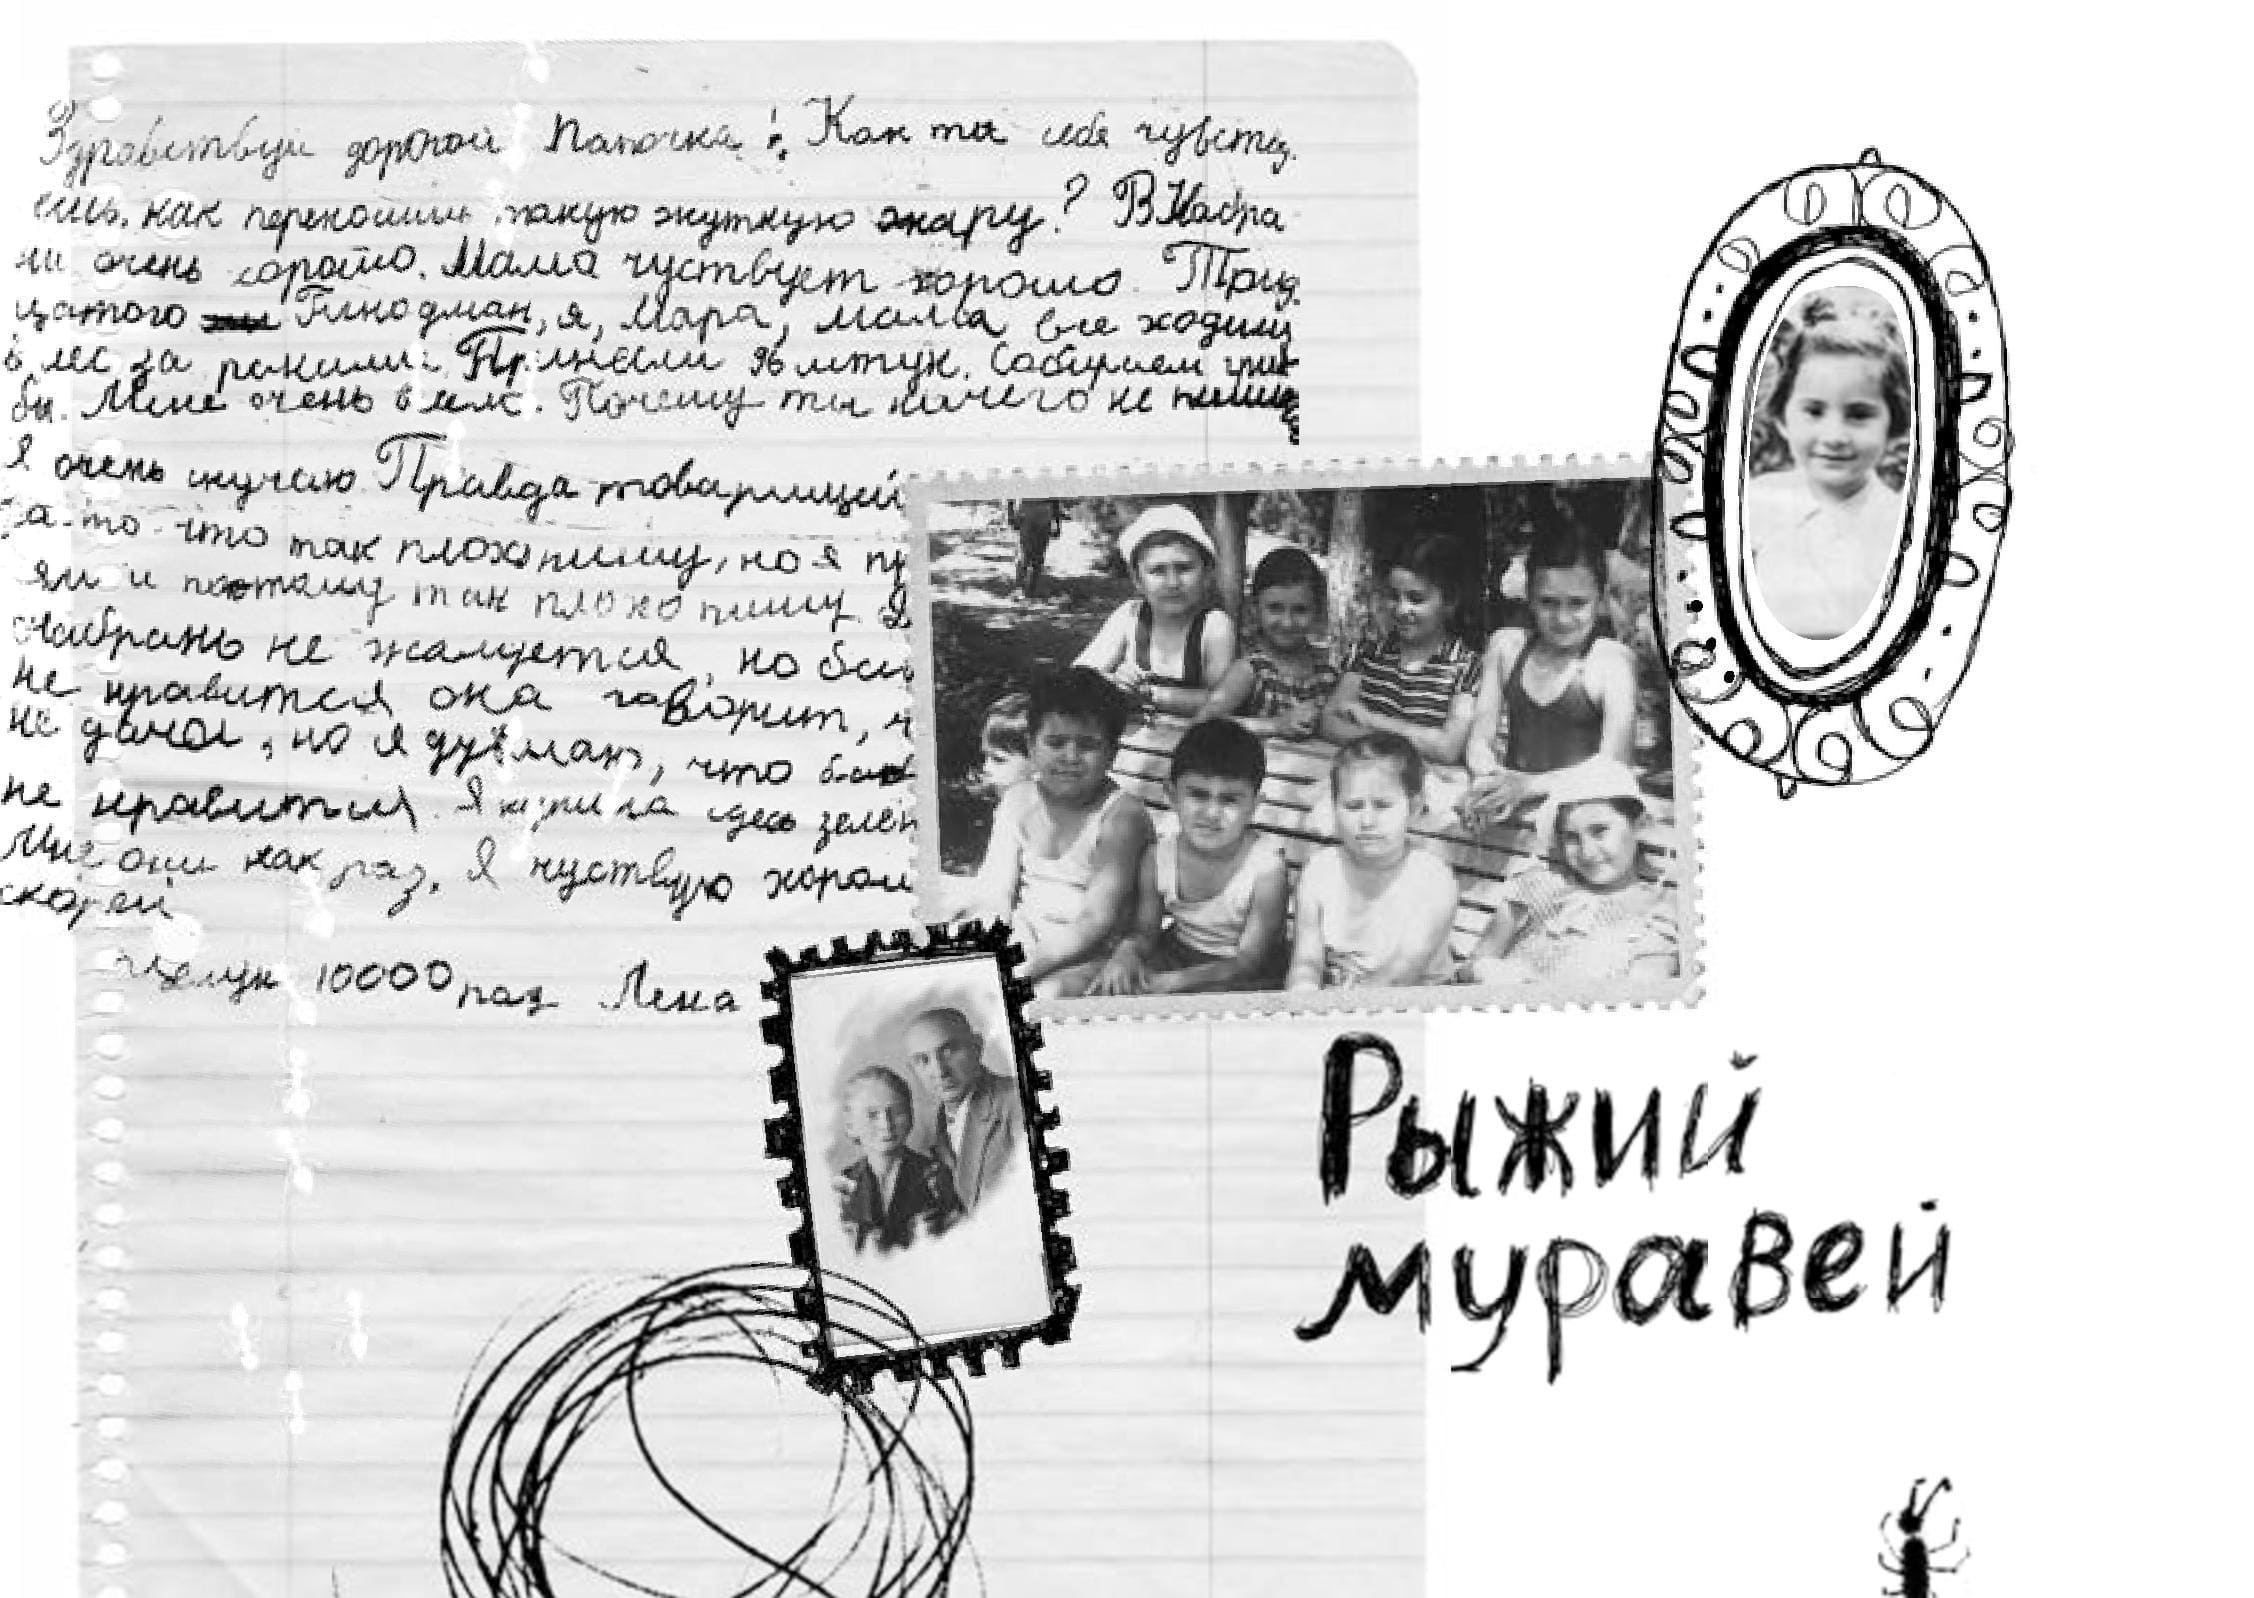 Здравствуй дорогой Папочка! Как ты себя чувству
ешь, как переносишь такую жуткую жару? В Набра
ни очень хорошо. Мама чуствует хорошо. Трид
цатого я, Мара, мама все ходили
в лес за Принесли 96 штук. Собираем гри
бы. Мне очень Почему ты ничего не пишешь
Я очень скучаю. Правда товарищей
за то что так плохо пишу, но я пр
и поэтому так плохо пишу.
Набрань не жалуется, но
не нравится она говорит, ч
не дача, но я думаю, что
не нравится. Я купила здесь зелен
Мне они как раз. Я чуствую хорош
скорей
целую 10000 раз Лена
Рыжий
муравей